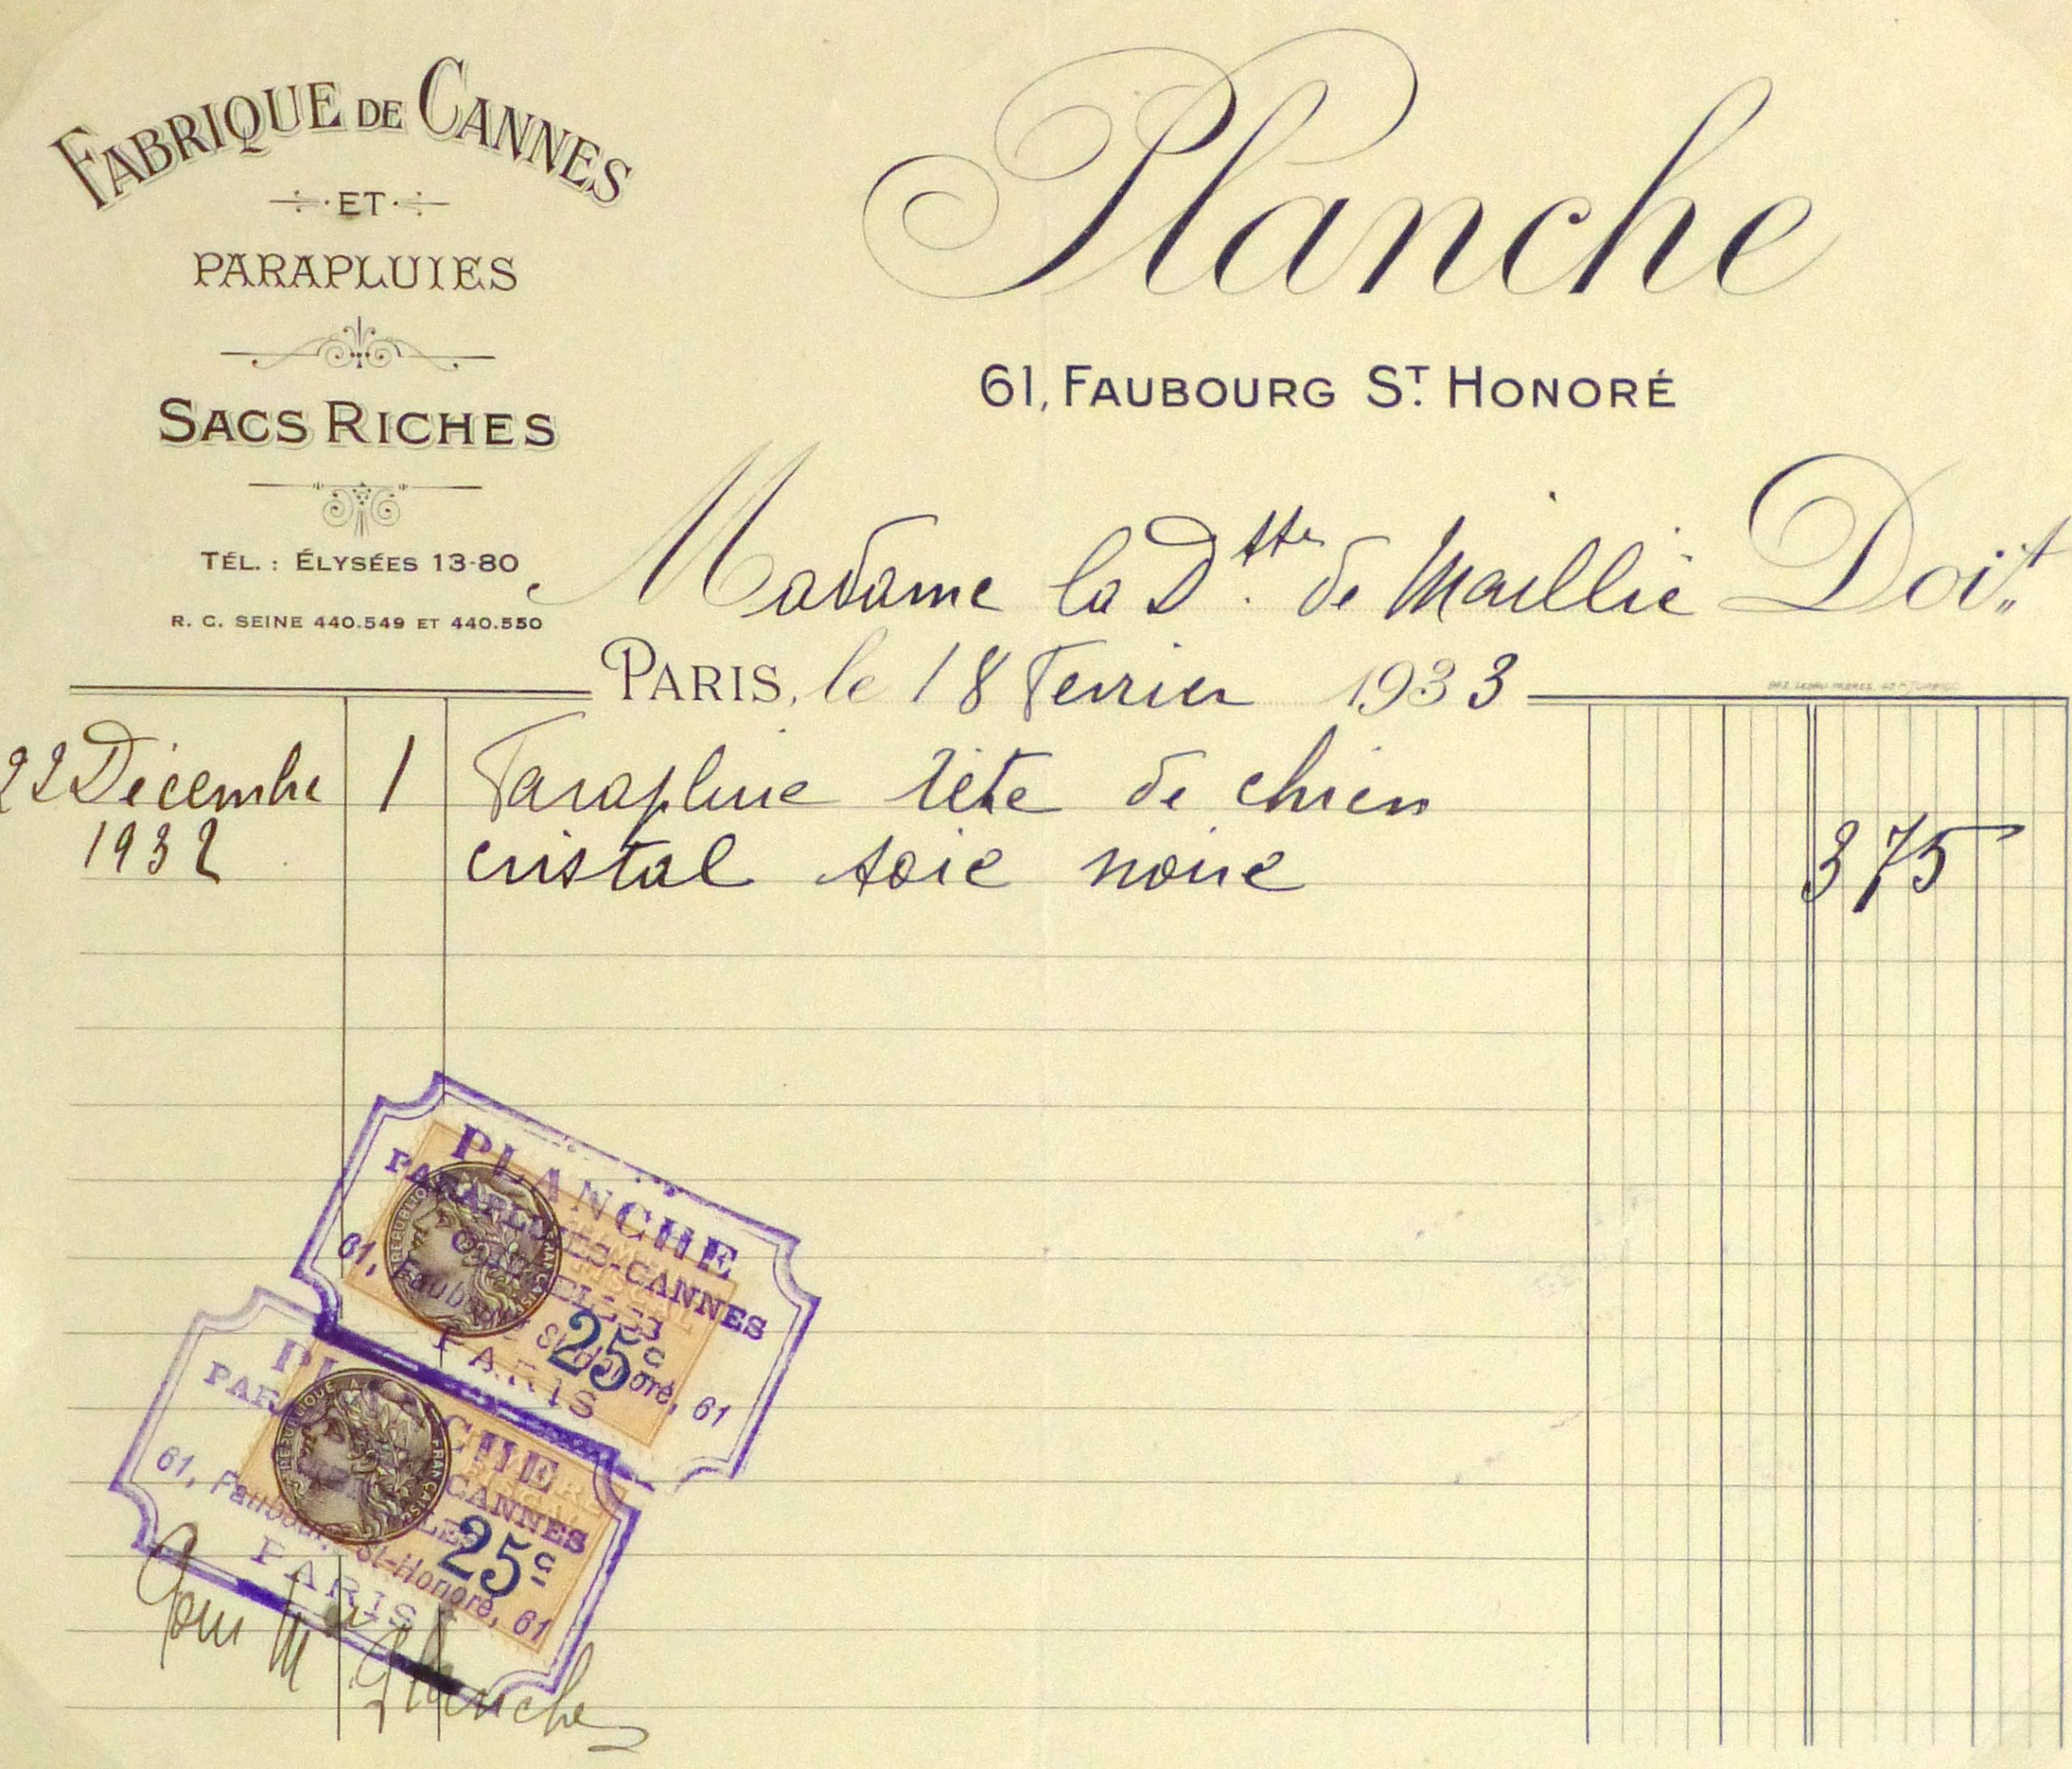 FABRIQUE DE CANNES
ET
PARAPLUIES
SACS RICHES
TÉL. : ÉLYSÉES 13-80
R. C. SEINE 440.549 ET 440.550
Planche
61, FAUBOURG ST HONORÉ
Madame la Dsse de Maillié Doit
PARIS, le 18 Fevrier 1933
22 Décembre 1932 1 Parapluie tête de chien
cristal soie noire 375
PLANCHE
PARAPLUIES-CANNES
OMBRELLES
61, Faubourg St-Honoré, 61
PARIS
RÉPUBLIQUE FRANÇAISE
25c
PLANCHE
PAR CANNES
61, Faubourg St-Honoré, 61
PARIS
RÉPUBLIQUE FRANÇAISE
25c
Pour Mr Planche